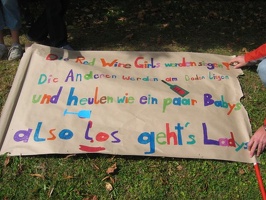 Red Wine Girls werden siegen
Die Anderen werden am Boden liegen
und heulen wie ein paar Babys
also Los geht's Ladys